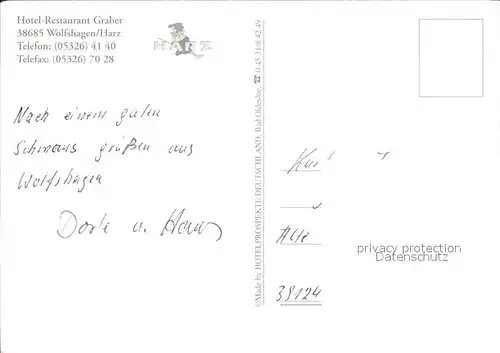 Hotel-Restaurant Graber
38685 Wolfshagen/Harz
Telefon: (05326) 41 40
Telefax: (05326) 70 28
HARZ
Nach einem guten
Schmaus grüßen aus
Wolfshagen
Dorle u. Hans
©Made by HOTELPROSPEKTE DEUTSCHLAND, Bad Oldesloe, ☎ 0 45 31/8 42 49
Alte
38124
privacy protection
Datenschutz